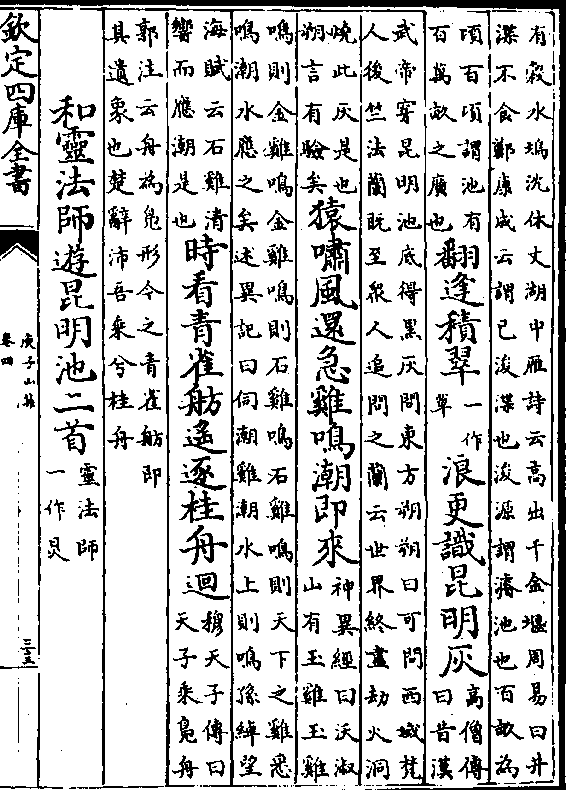 有穀水塢沈休文湖中雁詩云高出千金堰周易曰井
渫不食鄭康成云謂已浚渫也浚源謂濬池也百畝為
頃百頃謂池有
百萬畝之廣也
翻逢積翠
一作
草
浪更識昆明灰
高僧傳
曰昔漢
武帝穿昆明池底得黑灰問東方朔朔曰可問西域梵
人後竺法蘭既至衆人追問之蘭云世界終盡劫火洞
燒此灰是也
朔言有驗矣
猿嘯風還急雞鳴潮即來
神異經曰沃淑
山有玉雞玉雞
鳴則金雞鳴金雞鳴則石雞鳴石雞鳴則天下之雞悉
鳴潮水應之矣述異記曰伺潮雞潮水上則鳴孫綽望
海賦云石雞清
響而應潮是也
時看青雀舫遙逐桂舟迴
穆天子傳曰
天子乘鳧舟
郭注云舟為鳧形今之青雀舫即
其遺象也楚辭沛吾乘兮桂舟
和靈法師遊昆明池二首
靈法師
一作炅
欽定四庫全書
庾子山集
卷四
三十五